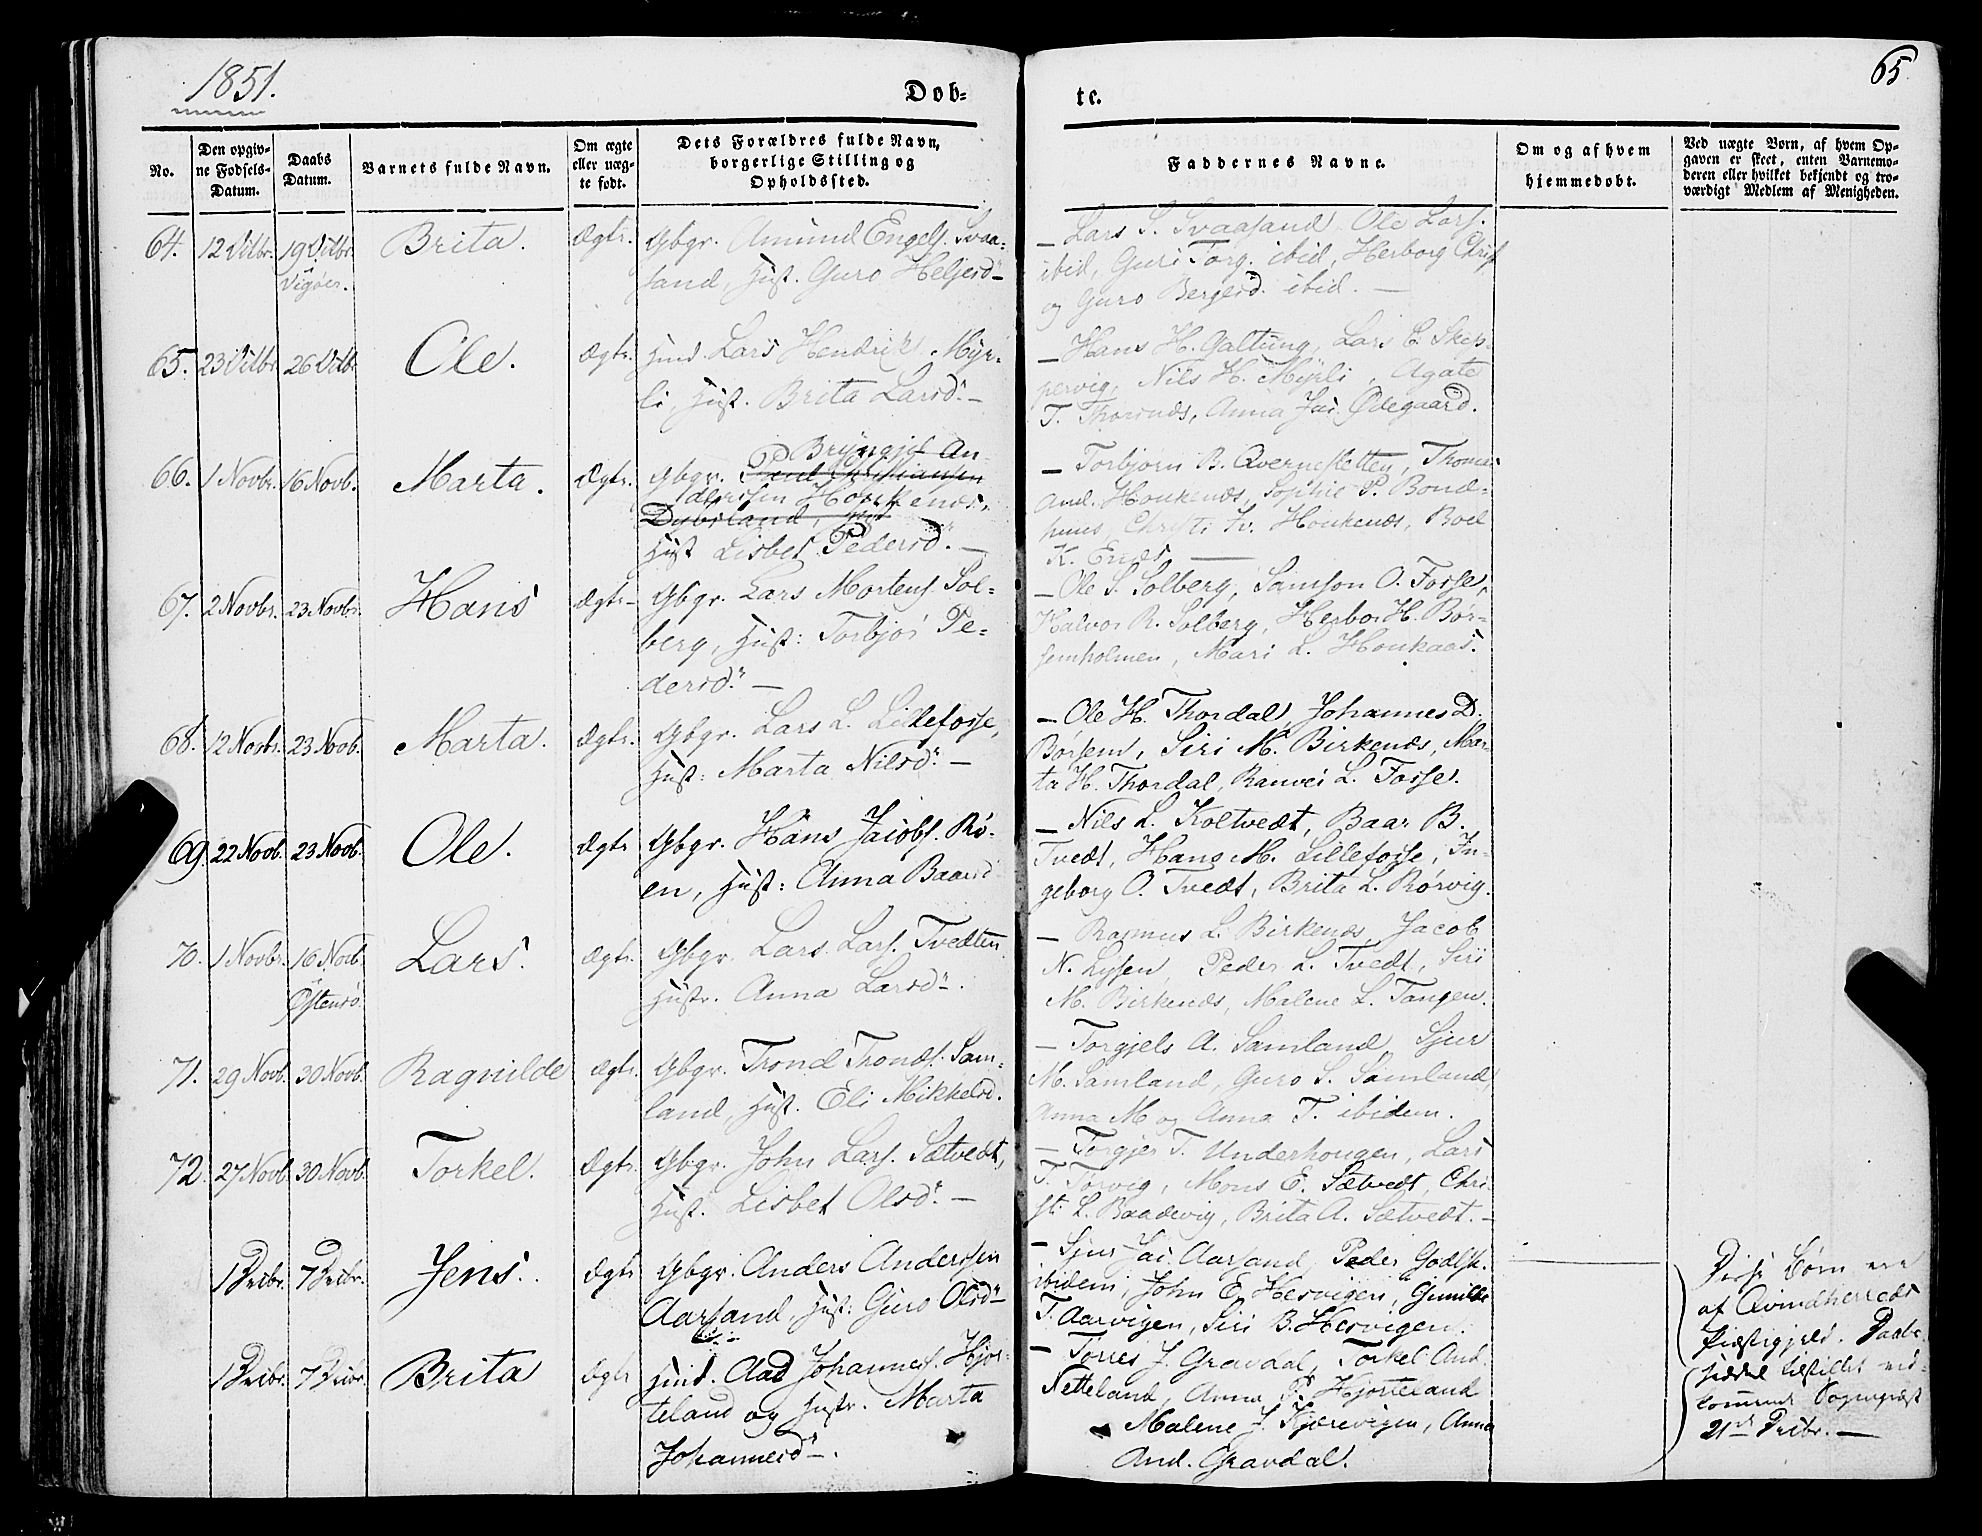 1851.
65
Dob=
te.
No.
Den opgiv-
ne Fødsels-
Datum.
Daabs
Datum.
Barnets fulde Navn.
Om ægte
eller uæg-
te født.
Dets Forældres fulde Navn,
borgerlige Stilling og
Opholdssted.
Faddernes Navne.
Om og af hvem
hjemmedobt.
Ved uægte Born, af hvem Op-
gaven er skeet, enten Barnemo-
deren eller hvilket bekjendt og tro-
værdigt Medlem af Menigheden.
64. 12 19 Brita. Ægte. Gbgr. Amund Engels. Svaa=
Vigøer.
sand, Hust. Guro Heljesd
— Lars S. Svaasand, Ole Lars.
ibid, Guri Torg. ibid, Herborg Christ
og Guro Bergesd. ibid. —
65. 23 26 Ole. Ægte. Huusd. Lars Hendrik. Myr=
li, Hust. Brita Larsd. —
— Hans H. Galtung, Lars C. Skip
pervig, Nils H. Myrli, Agate
T. Thorsnæs, Anna Jac. Ødegaard.
66. 1 Novbr. 16 Novb. Marta. Ægte. Brynjel An
Gbgr.
derssen
Hust Lisbet Pedersd. —
— Torbjørn B. Qverneslætten, Thomas
And. Houkenæs, Sophie P. Bond=
huus, Christi Iv. Houkenæs, Boel
K. Enæs —
67. 2 Novbr. 23 Novbr. Hans Ægte. Gbgr. Lars Mortens. Sol=
berg, Hust: Torbjør Pe=
dersd. —
— Ole S. Solberg, Samson O. Fosse,
Halvor R. Solberg, Herbor H. Bør=
semholmen, Mari L. Houkaas.
68. 12 Novbr. 23 Novb. Marta. Ægte. Gbgr. Lars L. Lillefosse,
Hust: Marta Nilsd. —
— Ole H. Thordal, Johannes D.
Børsem, Siri M. Birkenæs, Mar
ta H. Thordal, Ranvei L. Fosse.
69. 22 Novb. 23 Novb. Ole. Ægte Gbgr. Hans Jacobs. Rø=
en, Hust: Anna Baarsd
— Nils L. Koltvedt, Baar B.
Tvedt, Hans M. Lillefosse, In=
geborg O. Tvedt, Brita L. Rørvig.
70. 1 Novbr. 16 Novb. Lars. Ægte. Gbgr. Lars Lars. Tvedten
Østensø.
Hustr. Anna Larsd.
— Rasmus L. Birkenæs, Jacob
N. Lyssen, Peder L. Tvedt, Siri
M. Birkenæs, Malene L. Tangen.
71. 29 Novb. 30 Novb. Ragnilde Ægte. Gbgr. Trond Tronds. Sam=
land, Hust. Eli Mikkelsd.
— Torgjels A. Samland, Sjur
M. Samland, Guro S. Samland,
Anna M og Anna T. ibidem.
72. 27 Novb. 30 Novb. Torkel. Ægte. Gbgr. John Lars. Sætvedt,
Hust. Lisbet Olsd. —
— Torgjer T. Underhougen, Lars
T. Torvig, Mons E. Sætvedt, Chri=
sti L. Baadevig, Brita A. Sætvedt. —
1 7 Jens. Ægte Gbgr. Anders Anderssen
Aarsand, Hust: Guro Olsd
— Sjur Jac Aarsand, Peder Godsk.
ibidem, John E. Hesvigen, Gunilde
T. Aarvigen, Siri B. Hesvigen.
1 7 Brita Ægte Huusd. Aad Johannes. Hjor=
teland og Hustr. Marta
Johannesd.
— Torres J. Gravdal, Torkel And.
Netteland, Anna P. Hjorteland
Malene J. Kjærevigen, Anna
And. Gravdal.
Disse Børn ere
af Qvindherreds
Præstegjeld. Daabs